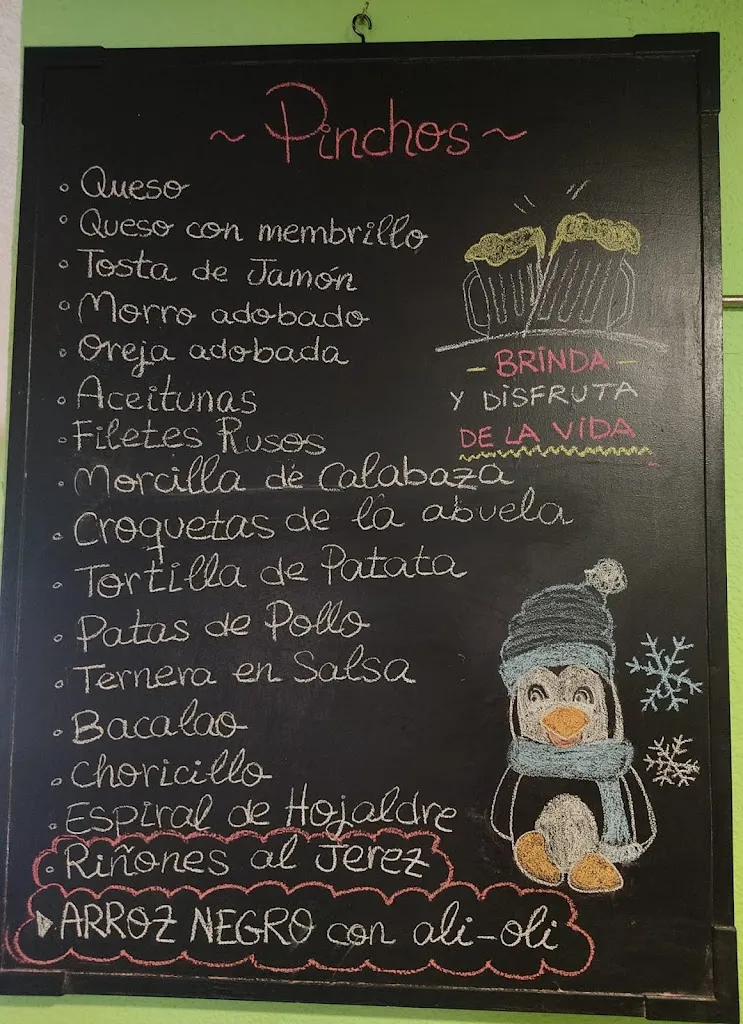 ~ Pinchos ~
• Queso
• Queso con membrillo
• Tosta de Jamón
• Morro adobado
• Oreja adobada
• Aceitunas
• Filetes Rusos
• Morcilla de Calabaza
• Croquetas de la abuela
• Tortilla de Patata
• Patas de Pollo
• Ternera en Salsa
• Bacalao
• Choricillo
• Espiral de Hojaldre
• Riñones al Jerez
▸ ARROZ NEGRO con ali-oli
- BRINDA -
Y DISFRUTA
DE LA VIDA